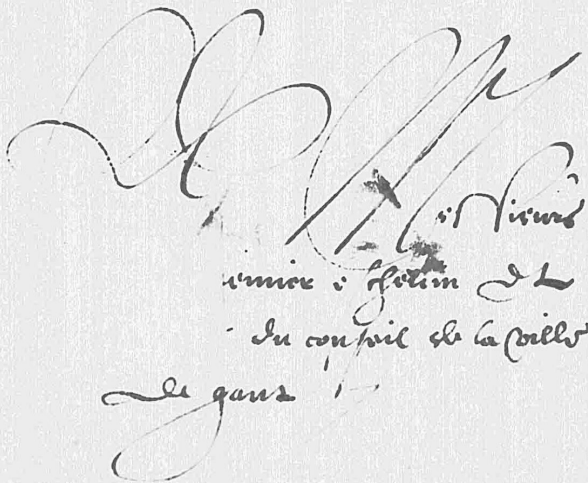 A Messieurs
premier eschevin et
du conseil de la ville
de gant